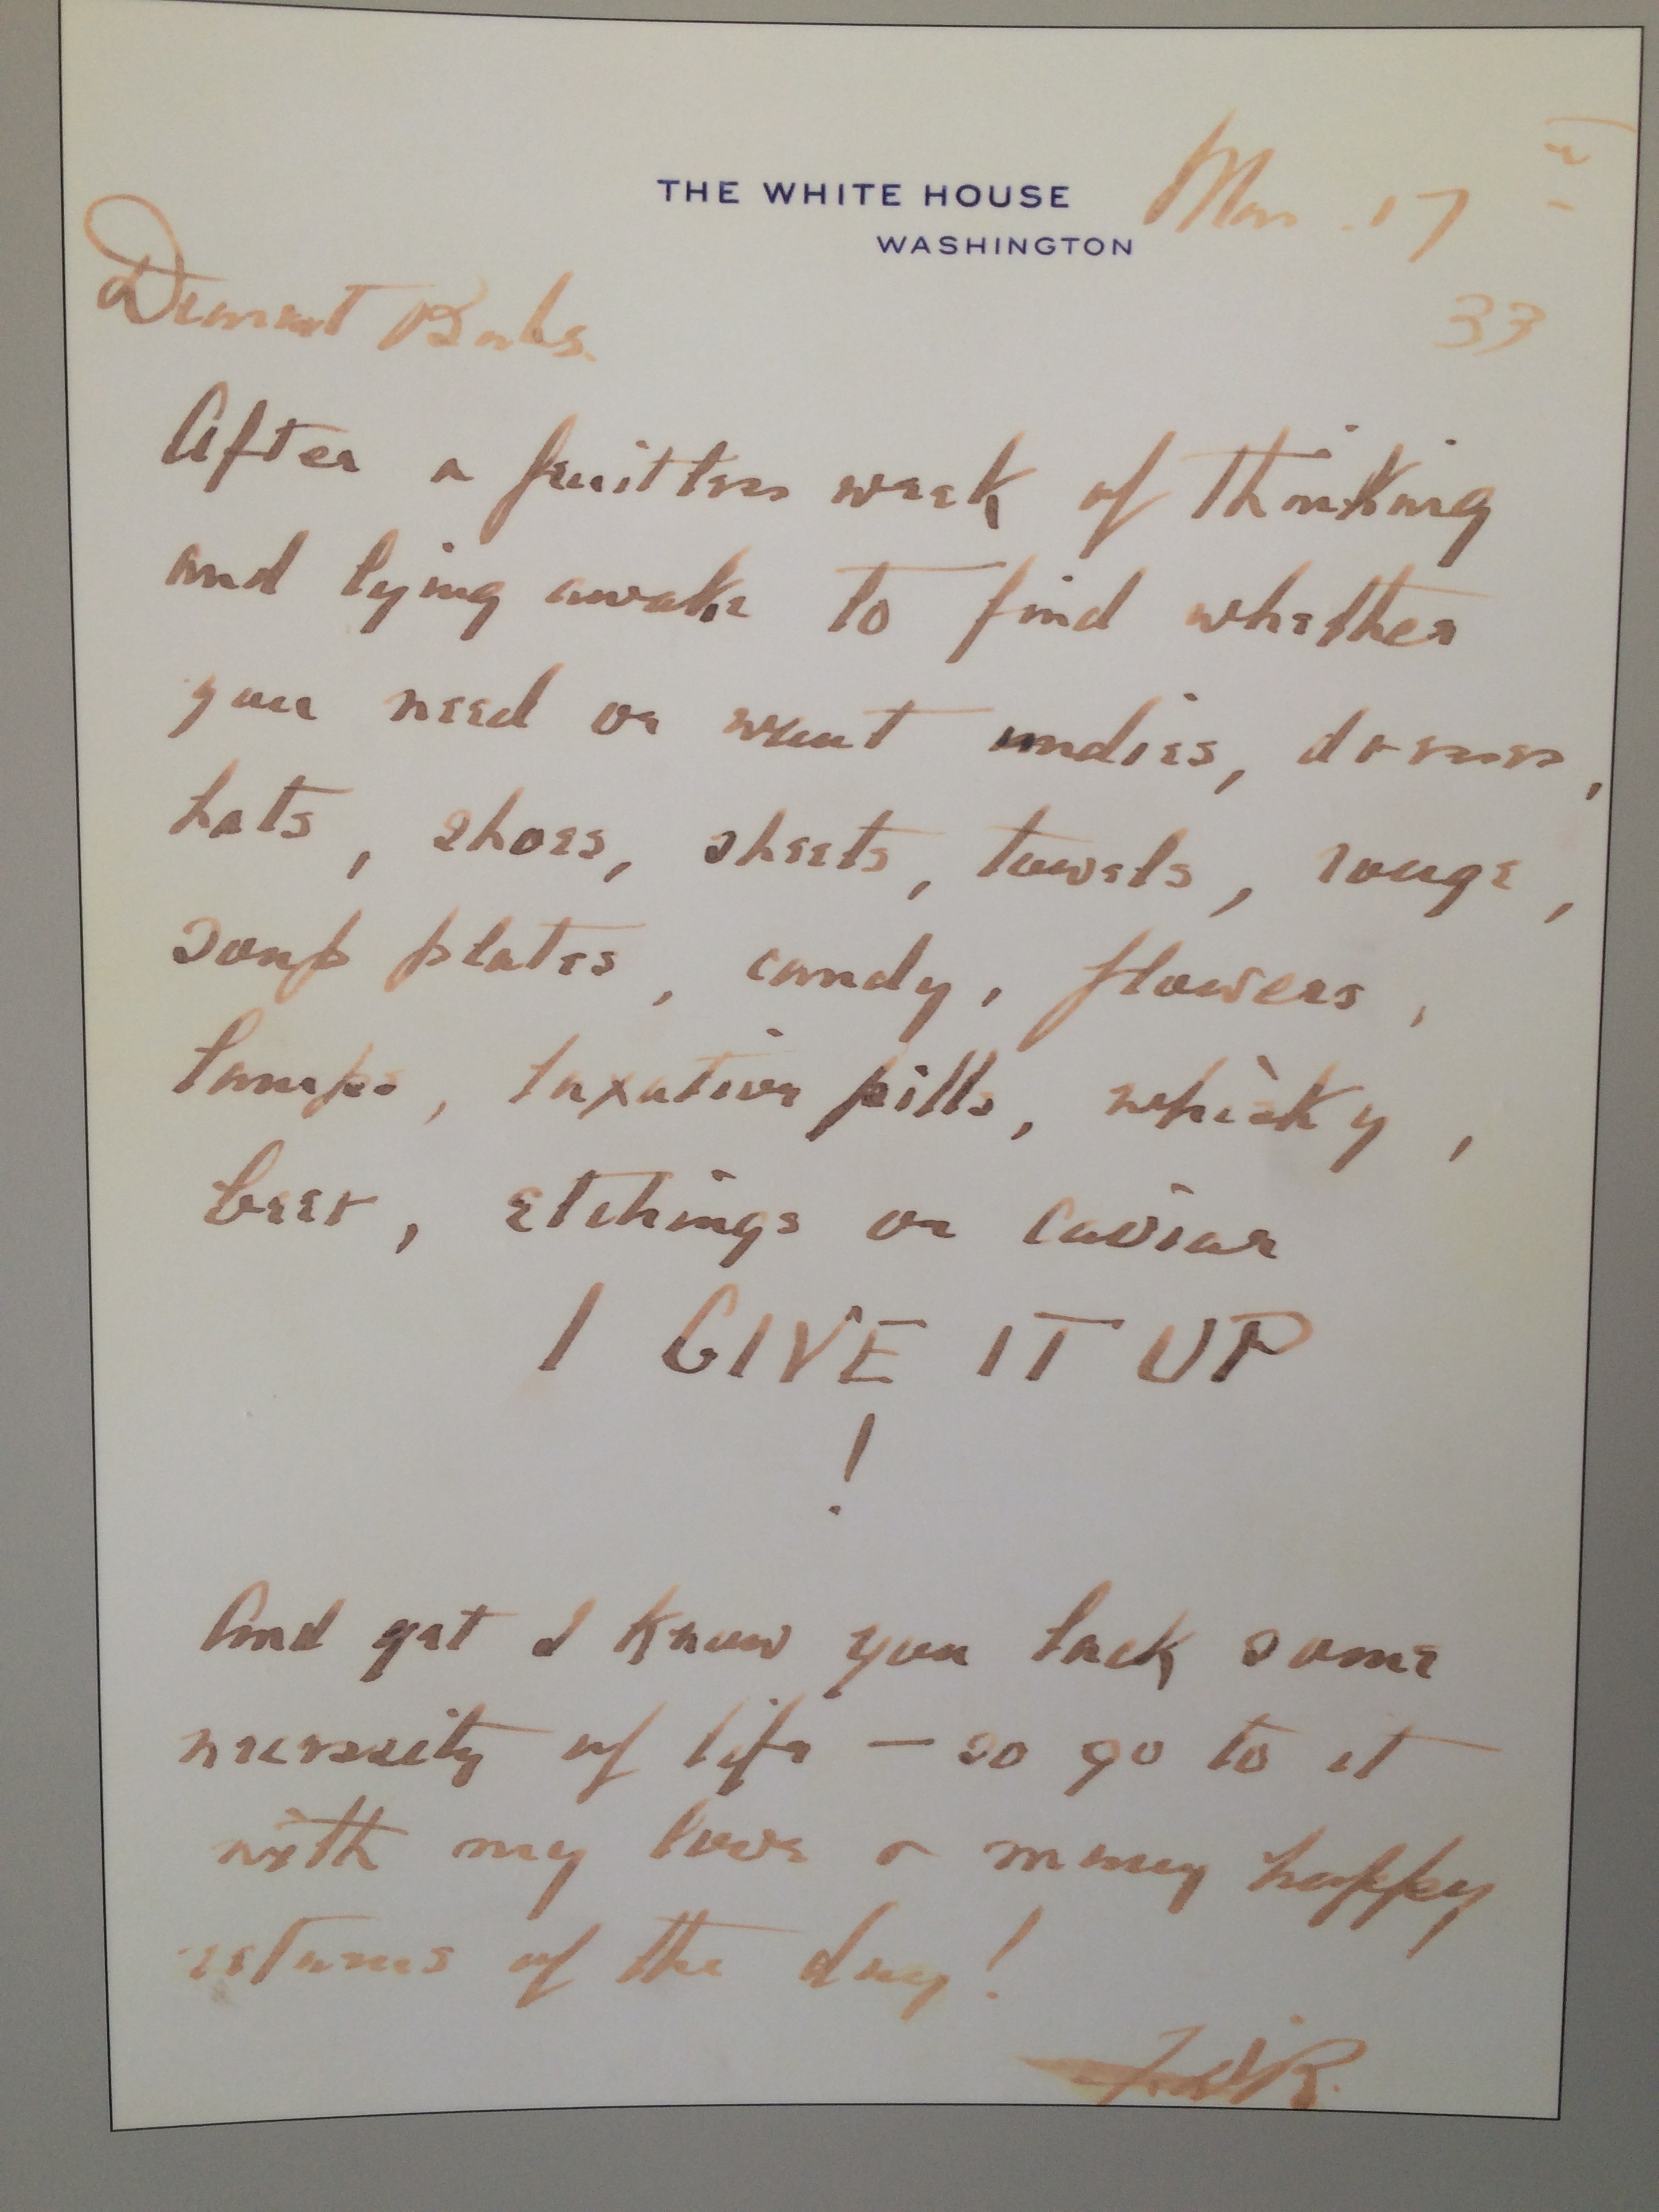 THE WHITE HOUSE
WASHINGTON
Mar. 17
33
Dearest Babs.
After a fruitless week of thinking
and lying awake to find whether
you need or want undies, dresses,
hats, shoes, sheets, towels, rouge,
soup plates, candy, flowers,
lamps, laxative pills, whisky,
beer, etchings or caviar
I GIVE IT UP
!
And yet I know you lack some
necessity of life — so go to it
with my love & many happy
returns of the day!
F.D.R.